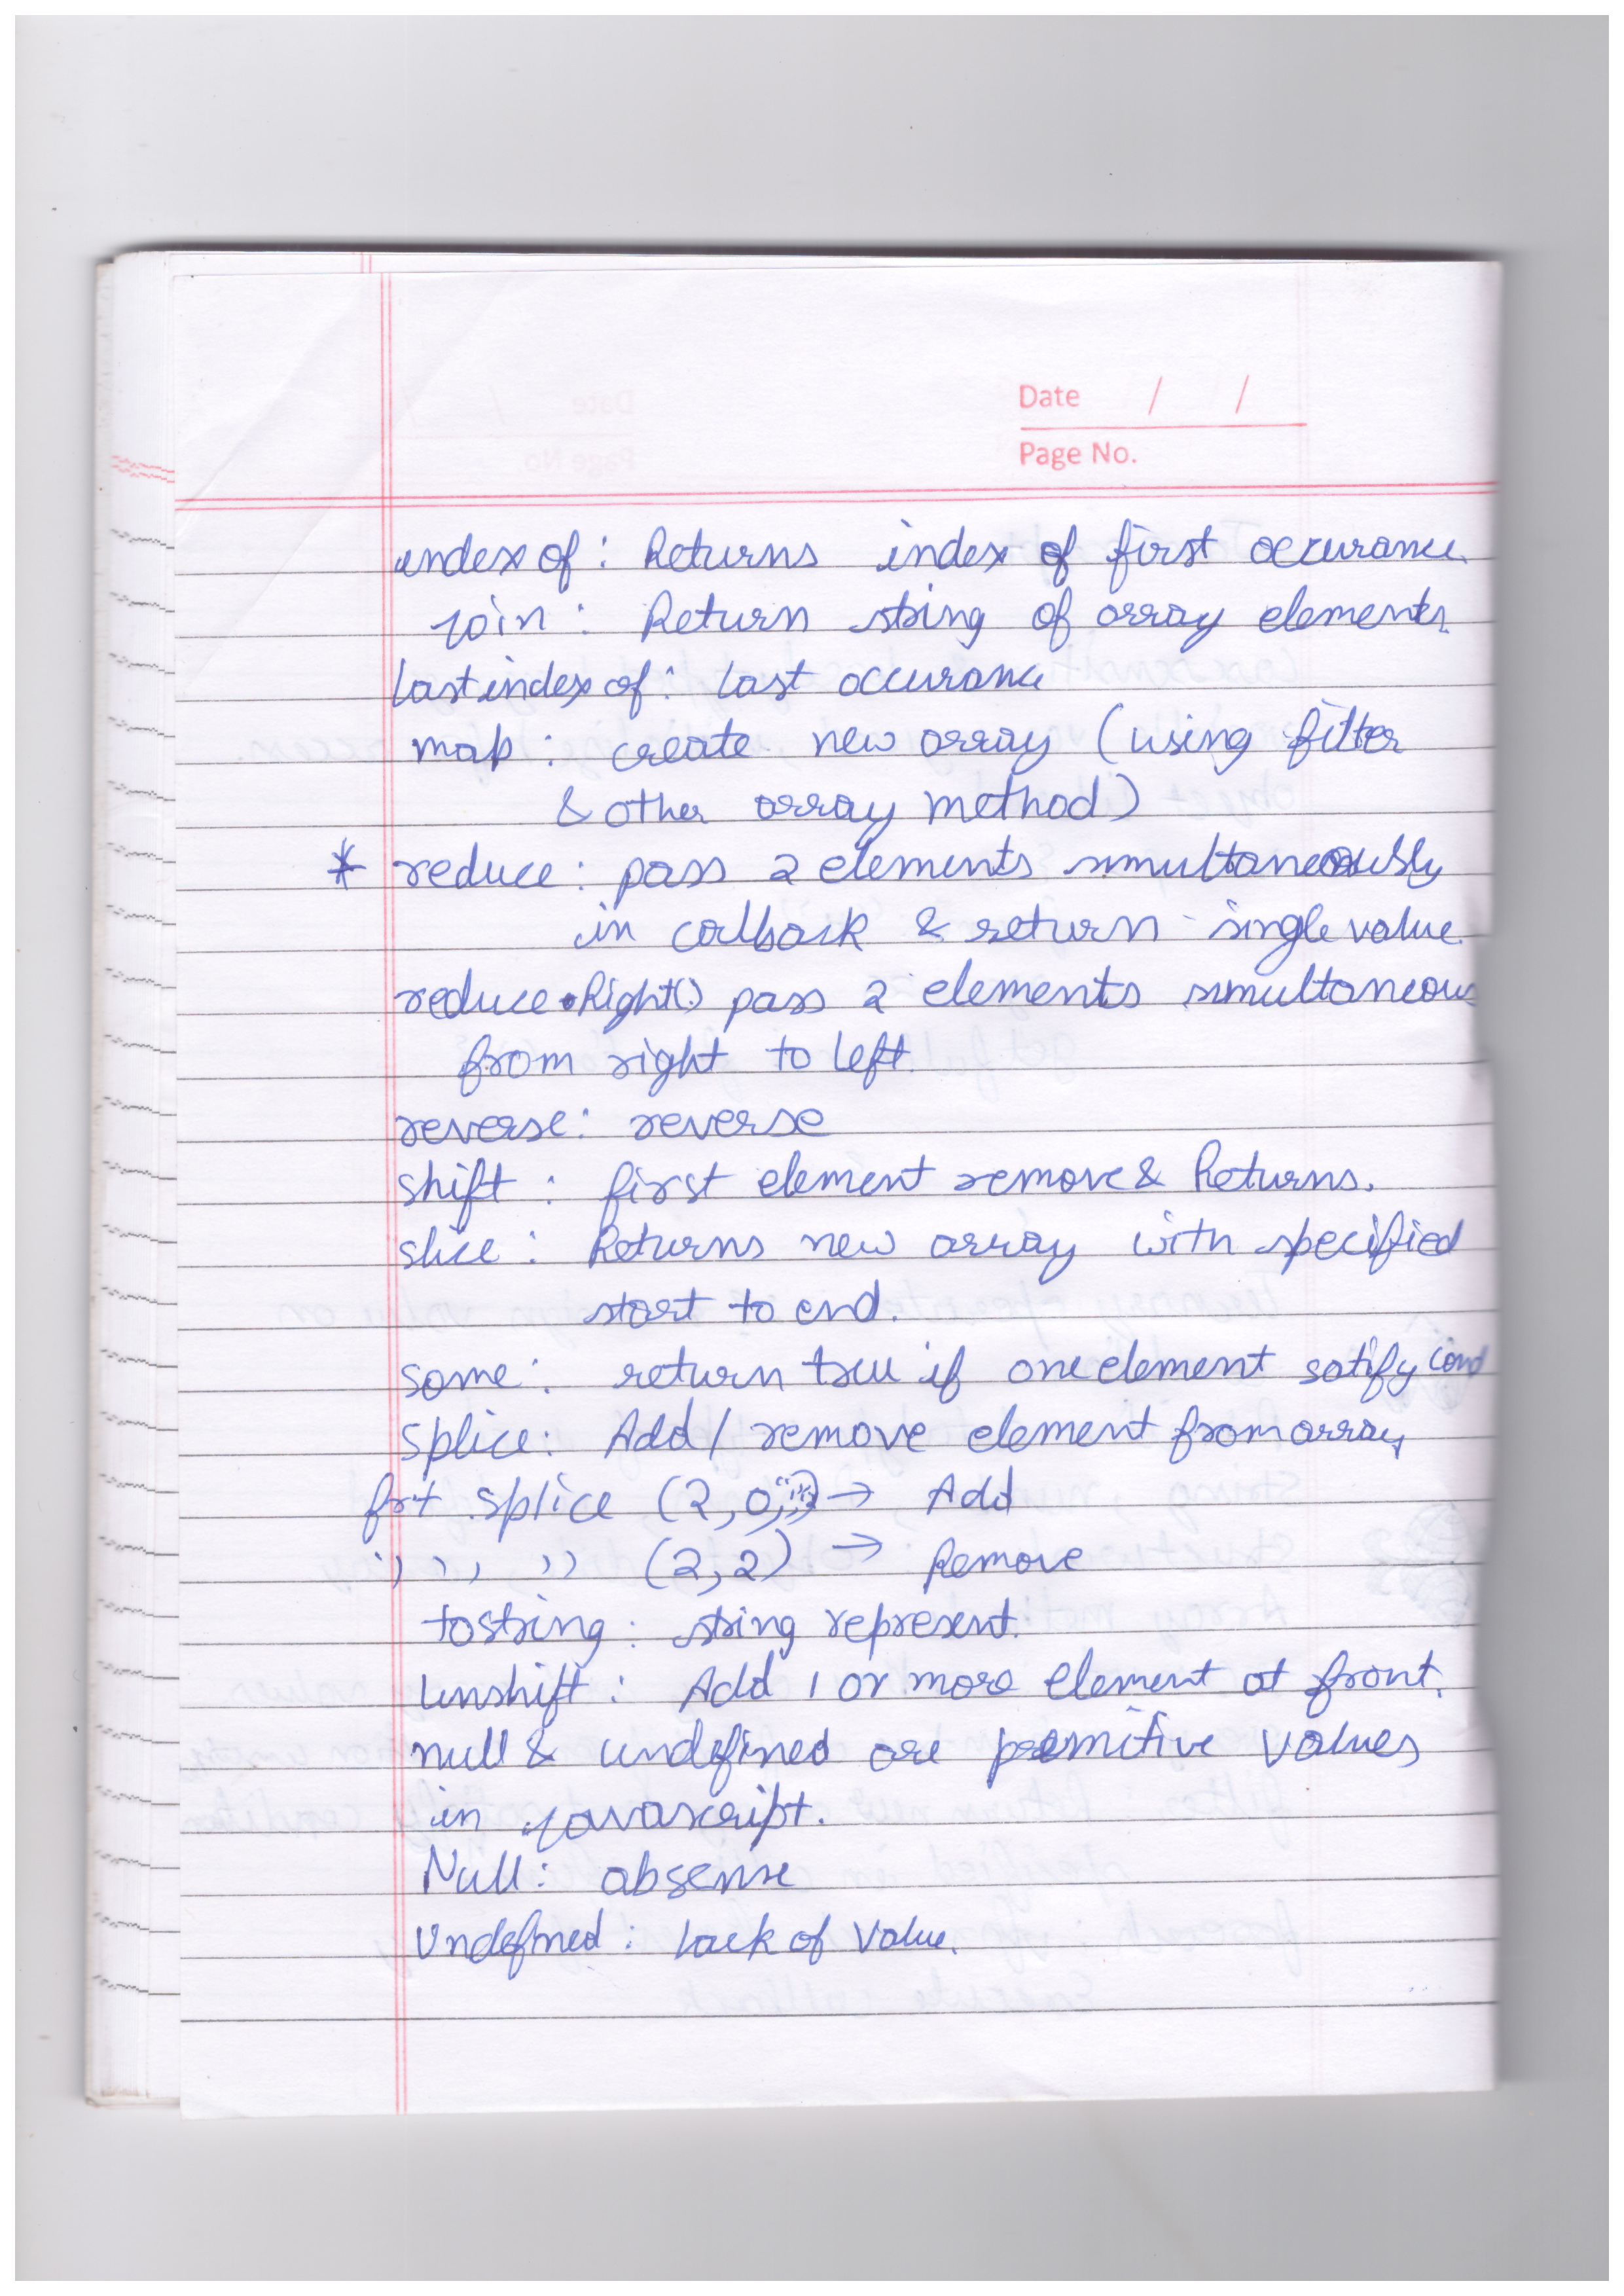 Date / /
Page No.
index of : Returns index of first occurance.
join : Return string of array elements.
Last index of : Last occurance
map : create new array (using filter
& other array method)
* reduce : pass 2 elements simultaneously
in callback & return single value.
reduce.Right() pass 2 elements simultaneous
from right to left.
reverse : reverse
shift : first element remove & Returns.
slice : Returns new array with specified
start to end.
some : return true if one element satify cond
splice : Add / remove element from array
frt .splice (2,0, → Add
" " " (2,2) → Remove
tostring : string represent.
Unshift : Add 1 or more element at front.
null & undefined are premitive values
in javascript.
Null : absense
Undefined : Lack of Value.